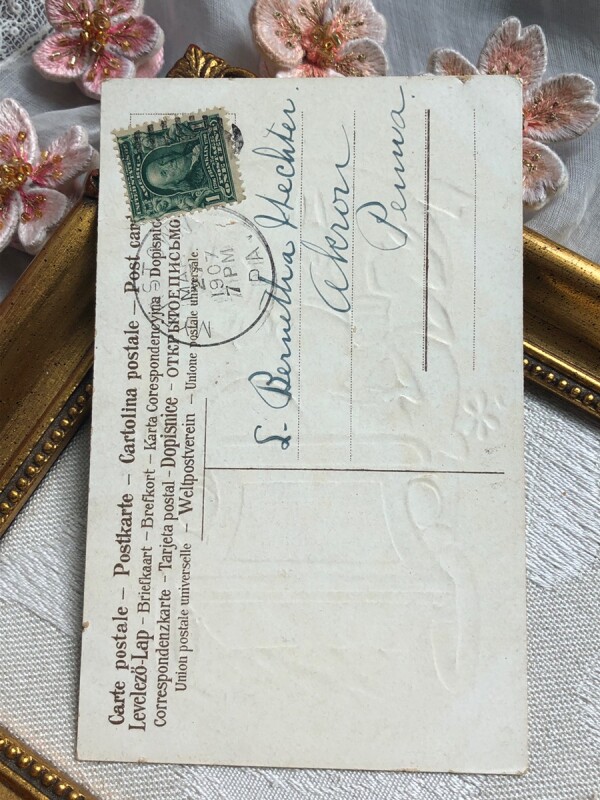 Carte postale – Postkarte – Cartolina postale – Post card
Levelező-Lap – Briefkaart – Brefkort – Karta Corespondencyjna – Dopisnic
Correspondenzkarte – Tarjeta postal – Dopisnice – ОТКРЫТОЕ ПИСЬМО
Union postale universelle – Weltpostverein – Unione postale universale.
1907
7 PM
PA.
L. Bernetha Hechter.
Akron
Penna.